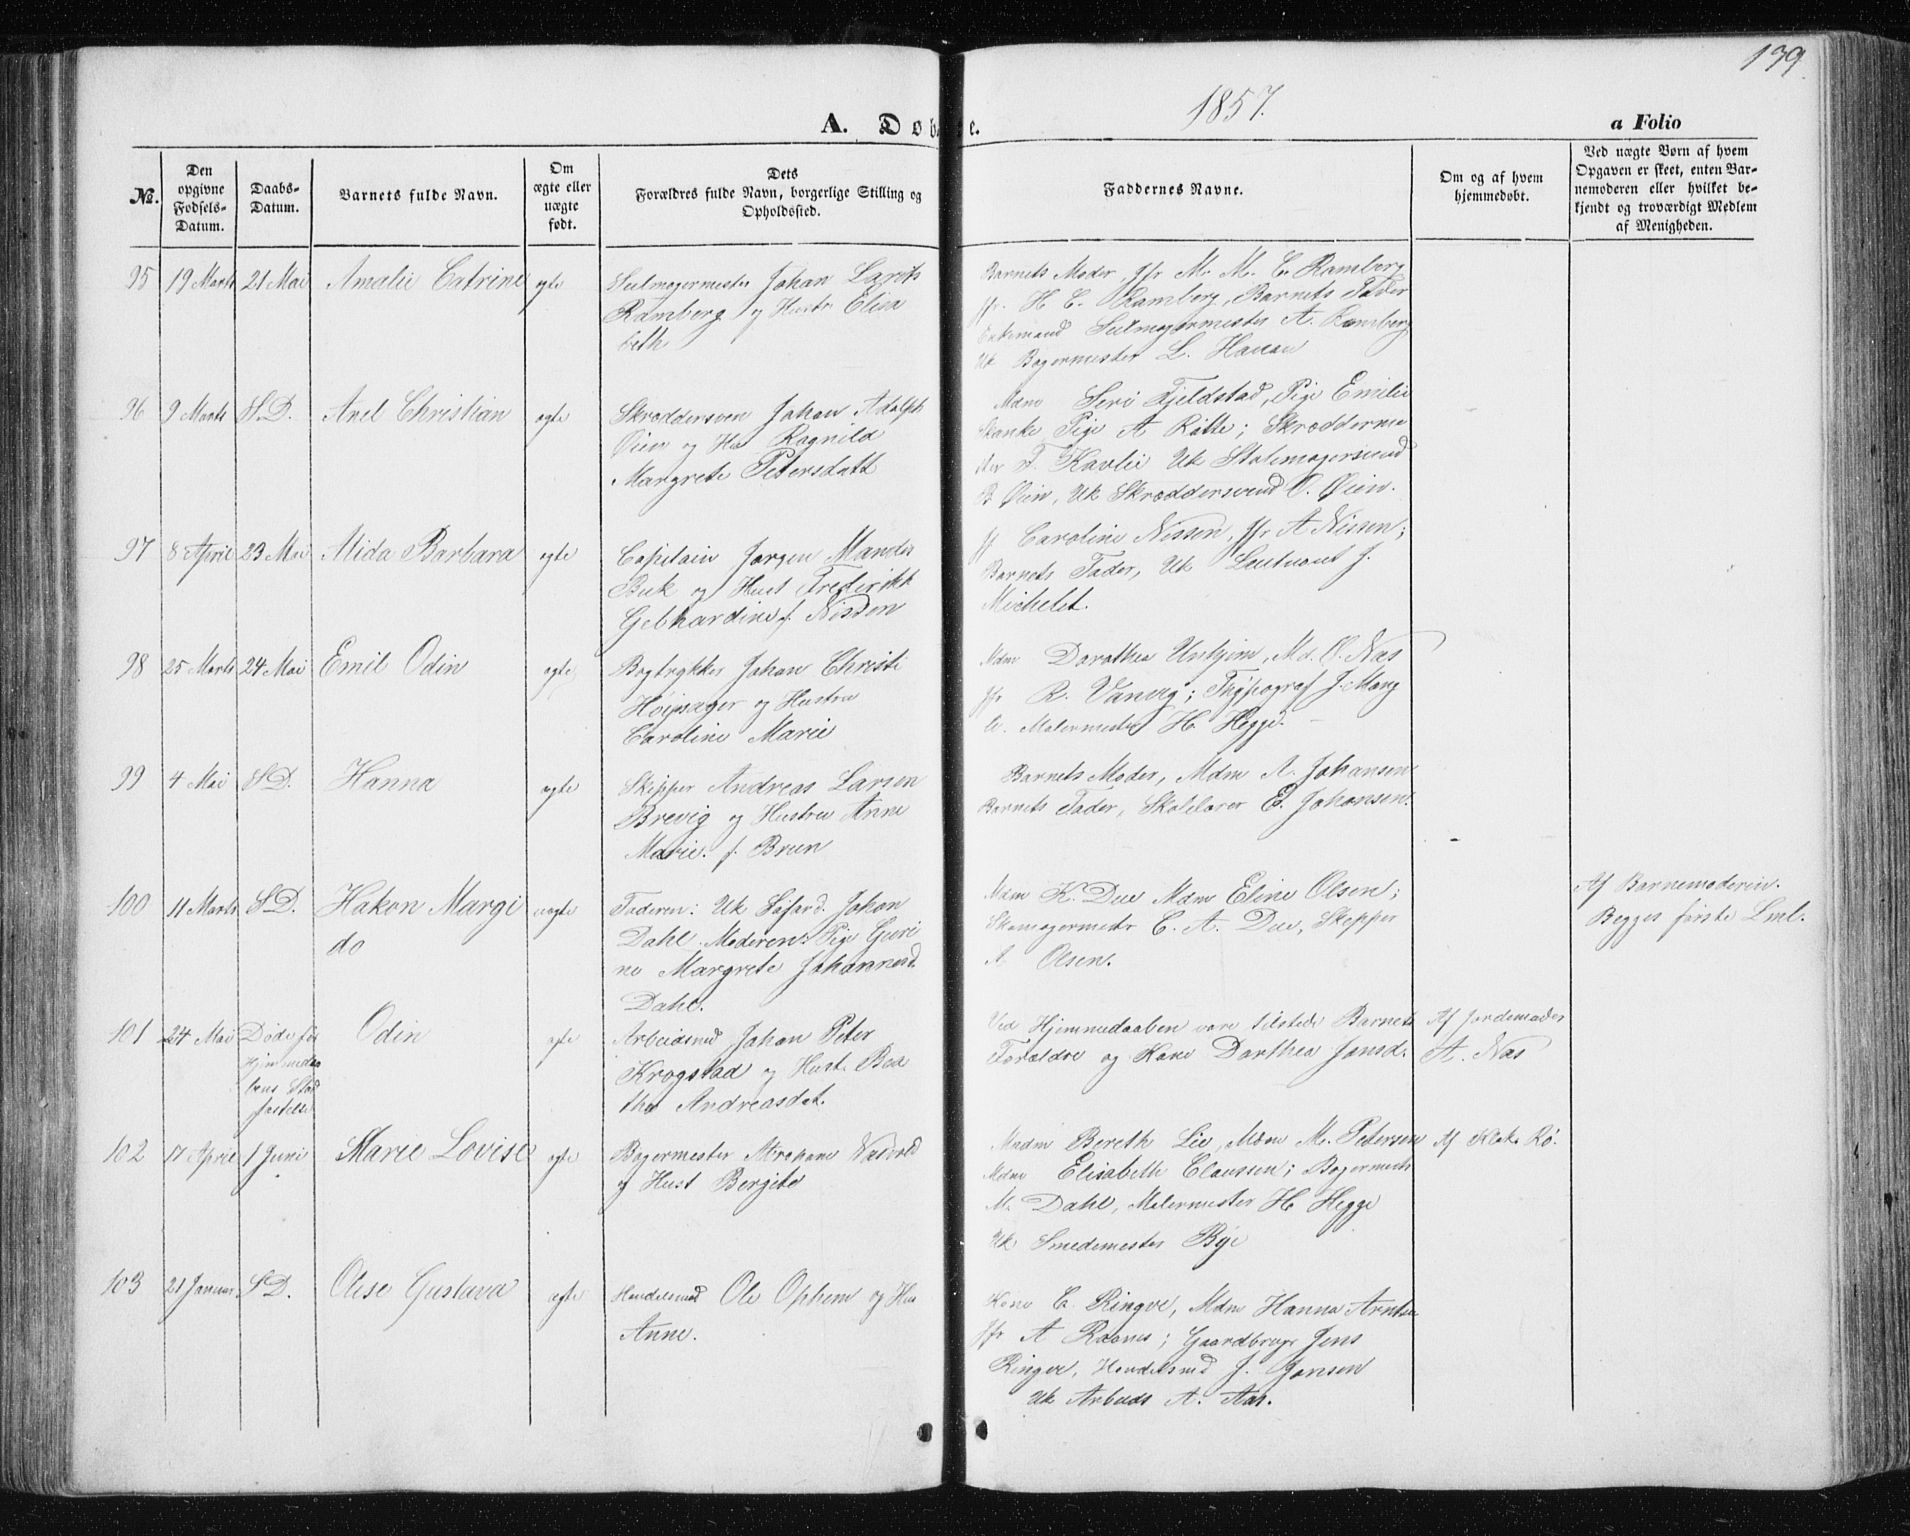 139
1857.
A. Døbte.
a Folio
No.
Den opgivne Fødsels-Datum.
Daabs-Datum.
Barnets fulde Navn.
Om ægte eller uægte født.
Dets Forældres fulde Navn, borgerlige Stilling og Opholdssted.
Faddernes Navne.
Om og af hvem hjemmedøbt.
Ved uægte Børn af hvem Opgaven er skeet, enten Barnemoderen eller hvilket bekjendt og troværdigt Medlem af Menigheden.
95 19 Marts 21 Mai Amalie Catrine ægte
Seilmagermester Johan
Ramberg og Hustr Elisa
beth
Barnets Moder, Jfr M. M. C. Ramberg
Jfr. H C. Ramberg, Barnets Fader
Enkemand Seilmagermester A. Ramberg
Uk Bagermester L. Hansen
96 9 Marts S.D. Axel Christian ægte
Skræddersven Johan Adolph
Øien og Hus Ragnild
Margrete Petersdatt
Mdm Seri Fjeldstad, Pige Emilie
Skanke Pige A Rötte; Skrædderme
ster F. Kavlie Uk Stolemagersvend
B Øien, Uk Skræddersvend O. Øien.
97 8 April 23 Mai Alida Barbara ægte
Capitain Jørgen Mandes
Buk og Hust Frederikk
Gebhardine f. Nissen
Jf Caroline Nissen, Jfr A Nissen;
Barnets Fader, Uk Leutnant J.
Michelet.
98 25 Marts 24 Mai Emil Odin ægte
Bogtrykker Johan Christi
Høipsager og Hustru
Caroline Marie
Mdm Dorothea Unhjem, Md. O. Næs
Jfr R. Vanvig; Thÿpograf J. Moxy
Malermester H. Hegge.
99 4 Mai S.D. Hanna ægte
Skipper Andreas Larsen
Brevig og Hustru Anne
Marie. f. Brun
Barnets Moder, Mdm A. Johansen
Barnets Fader, Skolelærer E. Johansen.
100 11 Marts S.D. Hakon Margi
do
uægte
Faderen: Uk Søfard. Johan
Dahl. Moderen: Pige Guri
ne Margrete Johannesd.
Dahl.
Mdm K. Due Mdm Eline Olsen;
Skomagermestr C. A. Due, Skipper
A. Olsen.
Af Barnemoderen.
Begges første Lml.
101 24 Mai Døde før
Hjemmedaa
bens Stad
fæstelse
Odin
ægte
Arbeidsmd Johan Peter
Krogstad og Hust. Bea
the Andreasdat.
Ved Hjemmedaaben vare tilstede Barnets
Forældre og Kone Dorthea Jansd.
Af Jordemoder
A. Næs
102 17 April 1 Juni Marie Lovise ægte
Bagermester Abraham Næsvold
og Hust Bergitte
Madm Bereth Lie, Mdm M. Petersen
Mdm Elisabeth Claussen; Bagermestr
M. Dahl, Malermester H Hegge
Uk Smedemester Bÿe
Af Klok. Rø.
103 21 Januar. S.D. Olise Gustava ægte
Handelsmd Ole Ophem og Hus
Anne.
Kone C. Ringve, Mdm Hanna Arntsen
Jfr A Raanes; Gaardbruger Jens
Ringve, Handelsmd J. Jansen
Uk Arbeids A. Aas.